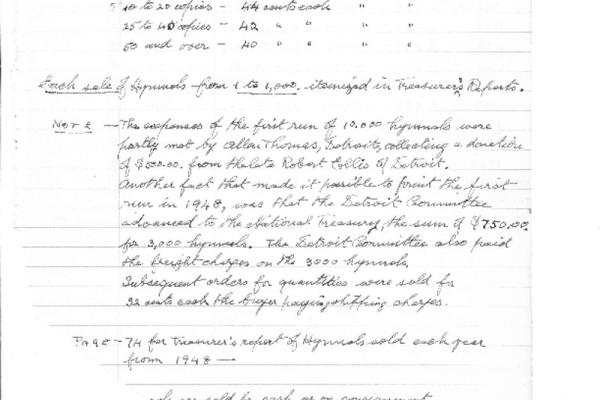 10 to 20 copies - 44 cents each " "
25 to 40 copies - 42 " " " "
50 and over - 40 " " " "
Each sale of Hymnals - from 1 to 1,000. itemized in Treasurer's Reports.
NOTE - The expenses of the first run of 10,000 hymnals were
partly met by Allan Thomas, Detroit, collecting a donation
of $500.00. from the late Robert Collie of Detroit.
Another fact that made it possible to print the first
run in 1948, was that the Detroit Committee
advanced to the National Treasury, the sum of $750.00.
for 3,000 hymnals. The Detroit Committee also paid
the freight charges on the 3000 hymnals.
Subsequent orders for quantities were sold for
22 cents each the buyer paying shipping charges.
PAGE - 74 for Treasurer's report of Hymnals sold each year
from 1948 —
are sold for cash or on consignment